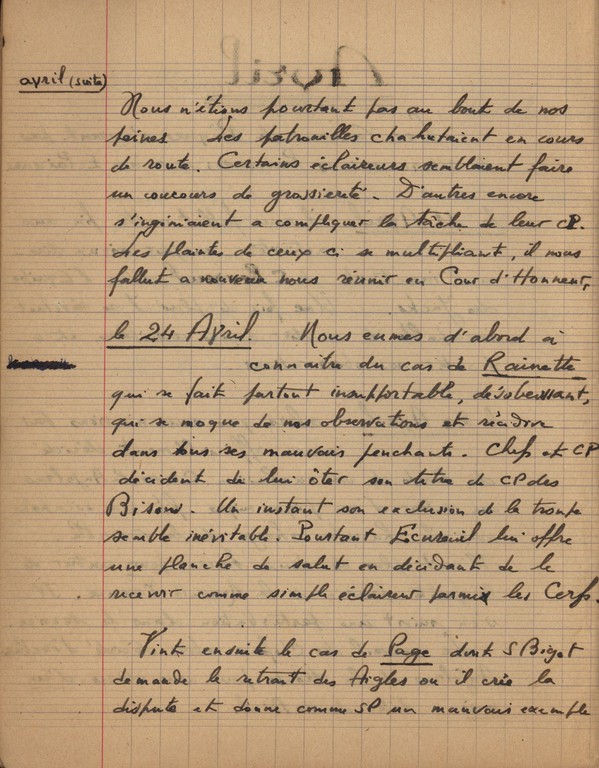 avril (suite)
Nous n'étions pourtant pas au bout de nos
peines. Les patrouilles chahutaient en cours
de route. Certains éclaireurs semblaient faire
un concours de grossiereté. D'autres encore
s'ingéniaient a compliquer la tâche de leur CP.
Les plaintes de ceux ci se multipliant, il nous
fallut a nouveau nous réunir en Cour d'Honneur,
le 24 Avril. Nous eumes d'abord à
connaitre du cas de Rainette
qui se fait partout insupportable, désobeissant,
qui se moque de nos observations et récidive
dans tous ses mauvais penchants. Chefs et CP
décident de lui ôter son titre de CP des
Bisons. Un instant son exclusion de la troupe
semble inévitable. Pourtant Ecureuil lui offre
une planche de salut en décidant de le
recevoir comme simple éclaireur parmi les Cerfs.
Vint ensuite le cas de Page dont S Bigot
demande le retrait des Aigles ou il crée la
dispute et donne comme SP un mauvais exemple